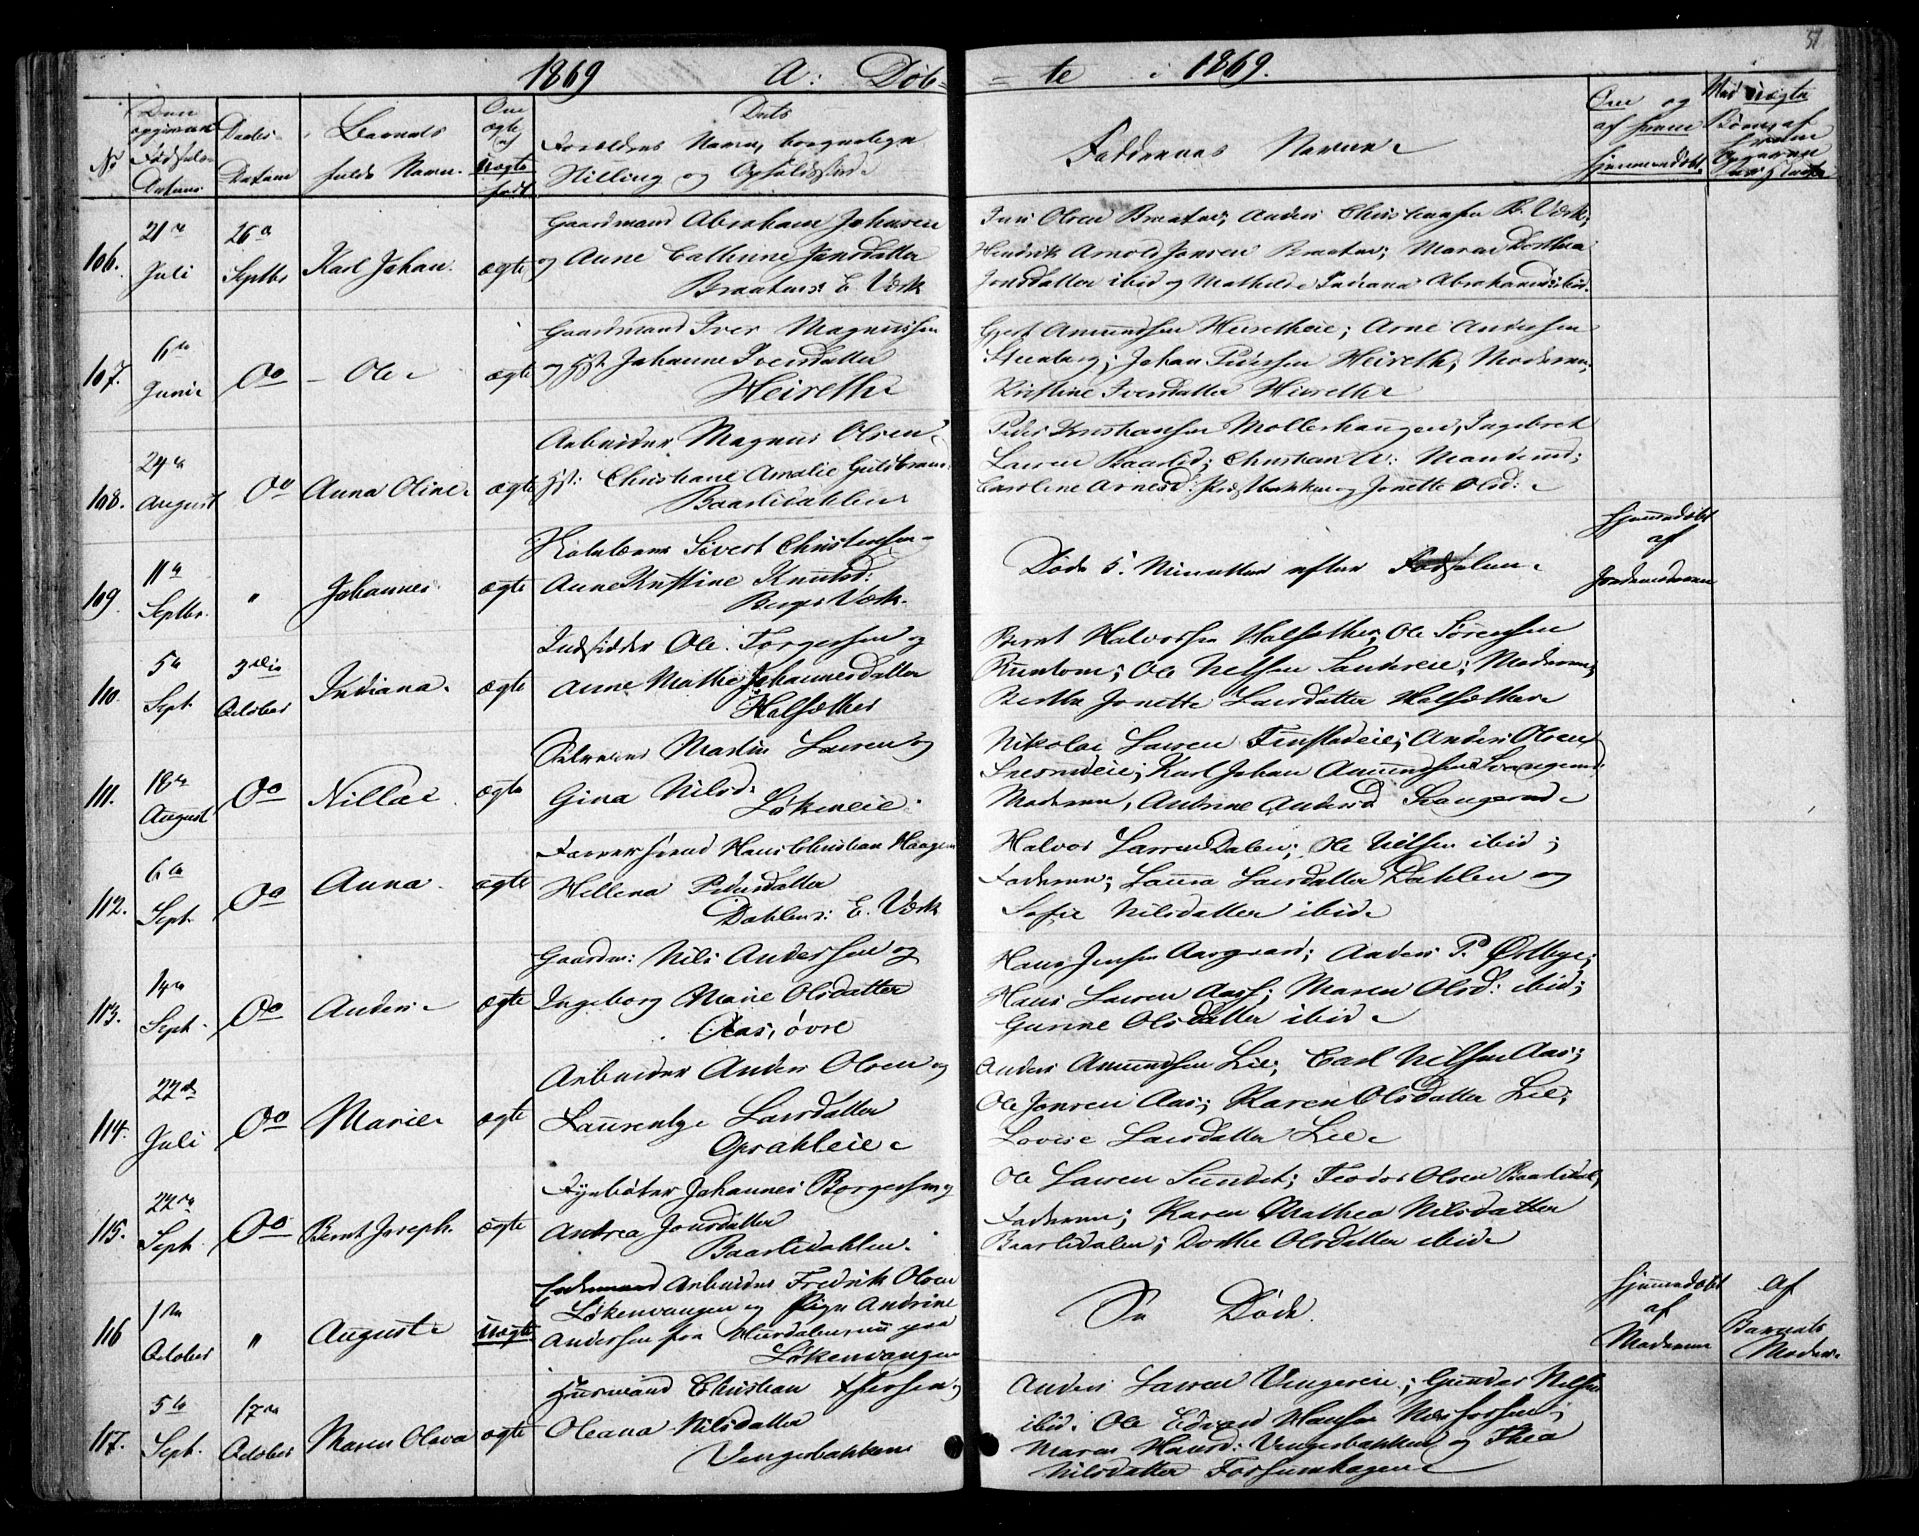 51
1869 A: Døb= =te i 1869.
No
Døbes
Datum
Barnets
fulde Navn.
Om
ægte
Uægte
født
Dets
Forældres Navn, borgerlige
Stilling og Opholdssted
Faddernes Navne
Om og
af hvem
hjemmedøbt
Ved uægte
Børn, af
hvem
106.
21de
Juli
26de
Septbr
Karl Johan.
ægte
Gaardmand Abraham Johnsen
og Anne Cathrine Jensdatter
Braaten: E. Værk
Olsen Braaten; Anders Christensen B. Værk;
Hendrik Arnold Jensen Braaten; Maren Dorthea
Jensdatter ibid og Mathilde Indiana Abrahamsd ibid.
107.
6te
Juni
Do
Ole
ægte
Gaardmand Iver Magnussen
og Hst: Johanne Iversdatter
Heireth
Gjert Amundsen Heiretheie; Arne Andersen
Steenberg; Johan Pedersen Heireth; Moderen;
Kristine Iversdatter Heireth
108.
24de
August
Do
Anna Oline
ægte
Arbeider Magnus Olsen
Hst: Christiane Amalie Guldbrands
Baaslidahlen
Peder Kristiansen Mollerhaugen, Ingebret
Larsen Baaslid; Christian A:
Caroline Arnesd: og Jonette Olsd:
109
11te
Septbr.
"
Johannes
ægte
Sivert Christensen
Anne Kristine Knudsd:
Berger Værk.
Døde 5. Minutter efter Fødselen
hjemmedøbt
af
Jordemoderen
110.
5te
Sept.
3die
October
Indiana
ægte
Indsidder Ole Torgersen og
Anne Mathea Johannesdatter
Halsæther
Bernt Halvorsen Halsæther; Ole Sørensen
Ole Nilsen Sandereie; Moderen;
Berthe Jonette Larsdatter Halsæther
111.
18de
August
Do
ægte
Martin Larsen og
Gina Nilsd:
Løkeneie
Nikolai Larsen Finstadeie; Anders Olsen
Karl Johan Amundsen
Moderen, Andrine Andersd
112.
6te
Sept.
Do
Anna
ægte
Hans Christian Haagen
Hellena Pedersdatter
Dahlen: E. Værk
Halvor Larsen Dalen; Ole Nilsen ibid;
Faderen; Laura Larsdatter Dahlen og
Sofie Nilsdatter ibid
113.
14de
Sept.
Do
Anders
ægte
Gaardm: Nils Andersen og
Ingeborg Marie Olsdatter
Aas, øvre
Hans Jensen Aasgaard; Anders P. Østbye;
Hans Larsen Aas; Maren Olsd: ibid;
Gunne Olsdatter ibid
114.
22de
Juli
Do
Marie
ægte
Arbeider Anders Olsen og
Laurentze Larsdatter
Opsahleie
Anders Amundsen Lie; Carl Nilsen Aas;
Ole Jonsen Aas; Karen Olsdatter Lie;
Lovise Larsdatter Lie
115.
22de
Sept
Do
Bernt Joseph.
ægte
Fyrbøter Johannes Borgersen og
Andrea Jonsdatter
Baaslidahlen.
Ole Larsen Sundet; Teodor Olsen Baaslidal,
Faderen; Karen Mathea Nilsdatter
Baaslidalen; Dorthe Olsdatter ibid
116
1ste
October
"
August
Uægte
Arbeider Fredrik Olsen
Løkenvangen og Pige Andrine
Andersen fra Hurdalen paa
Løkenvangen
Døde.
hjemmedøbt
af
Moderen
Af
Barnets
Moder
117.
5te
Sept.
17de
October
Maren Olava
ægte
Husmand Christian
Oleana Nilsdatter
Vengerbakken
Anders Larsen Vengereie; Gunder Nilsen
ibid. Ole Edvard Hansen
Maren Hansd: Vengerbakken og Thea
Nilsdatter